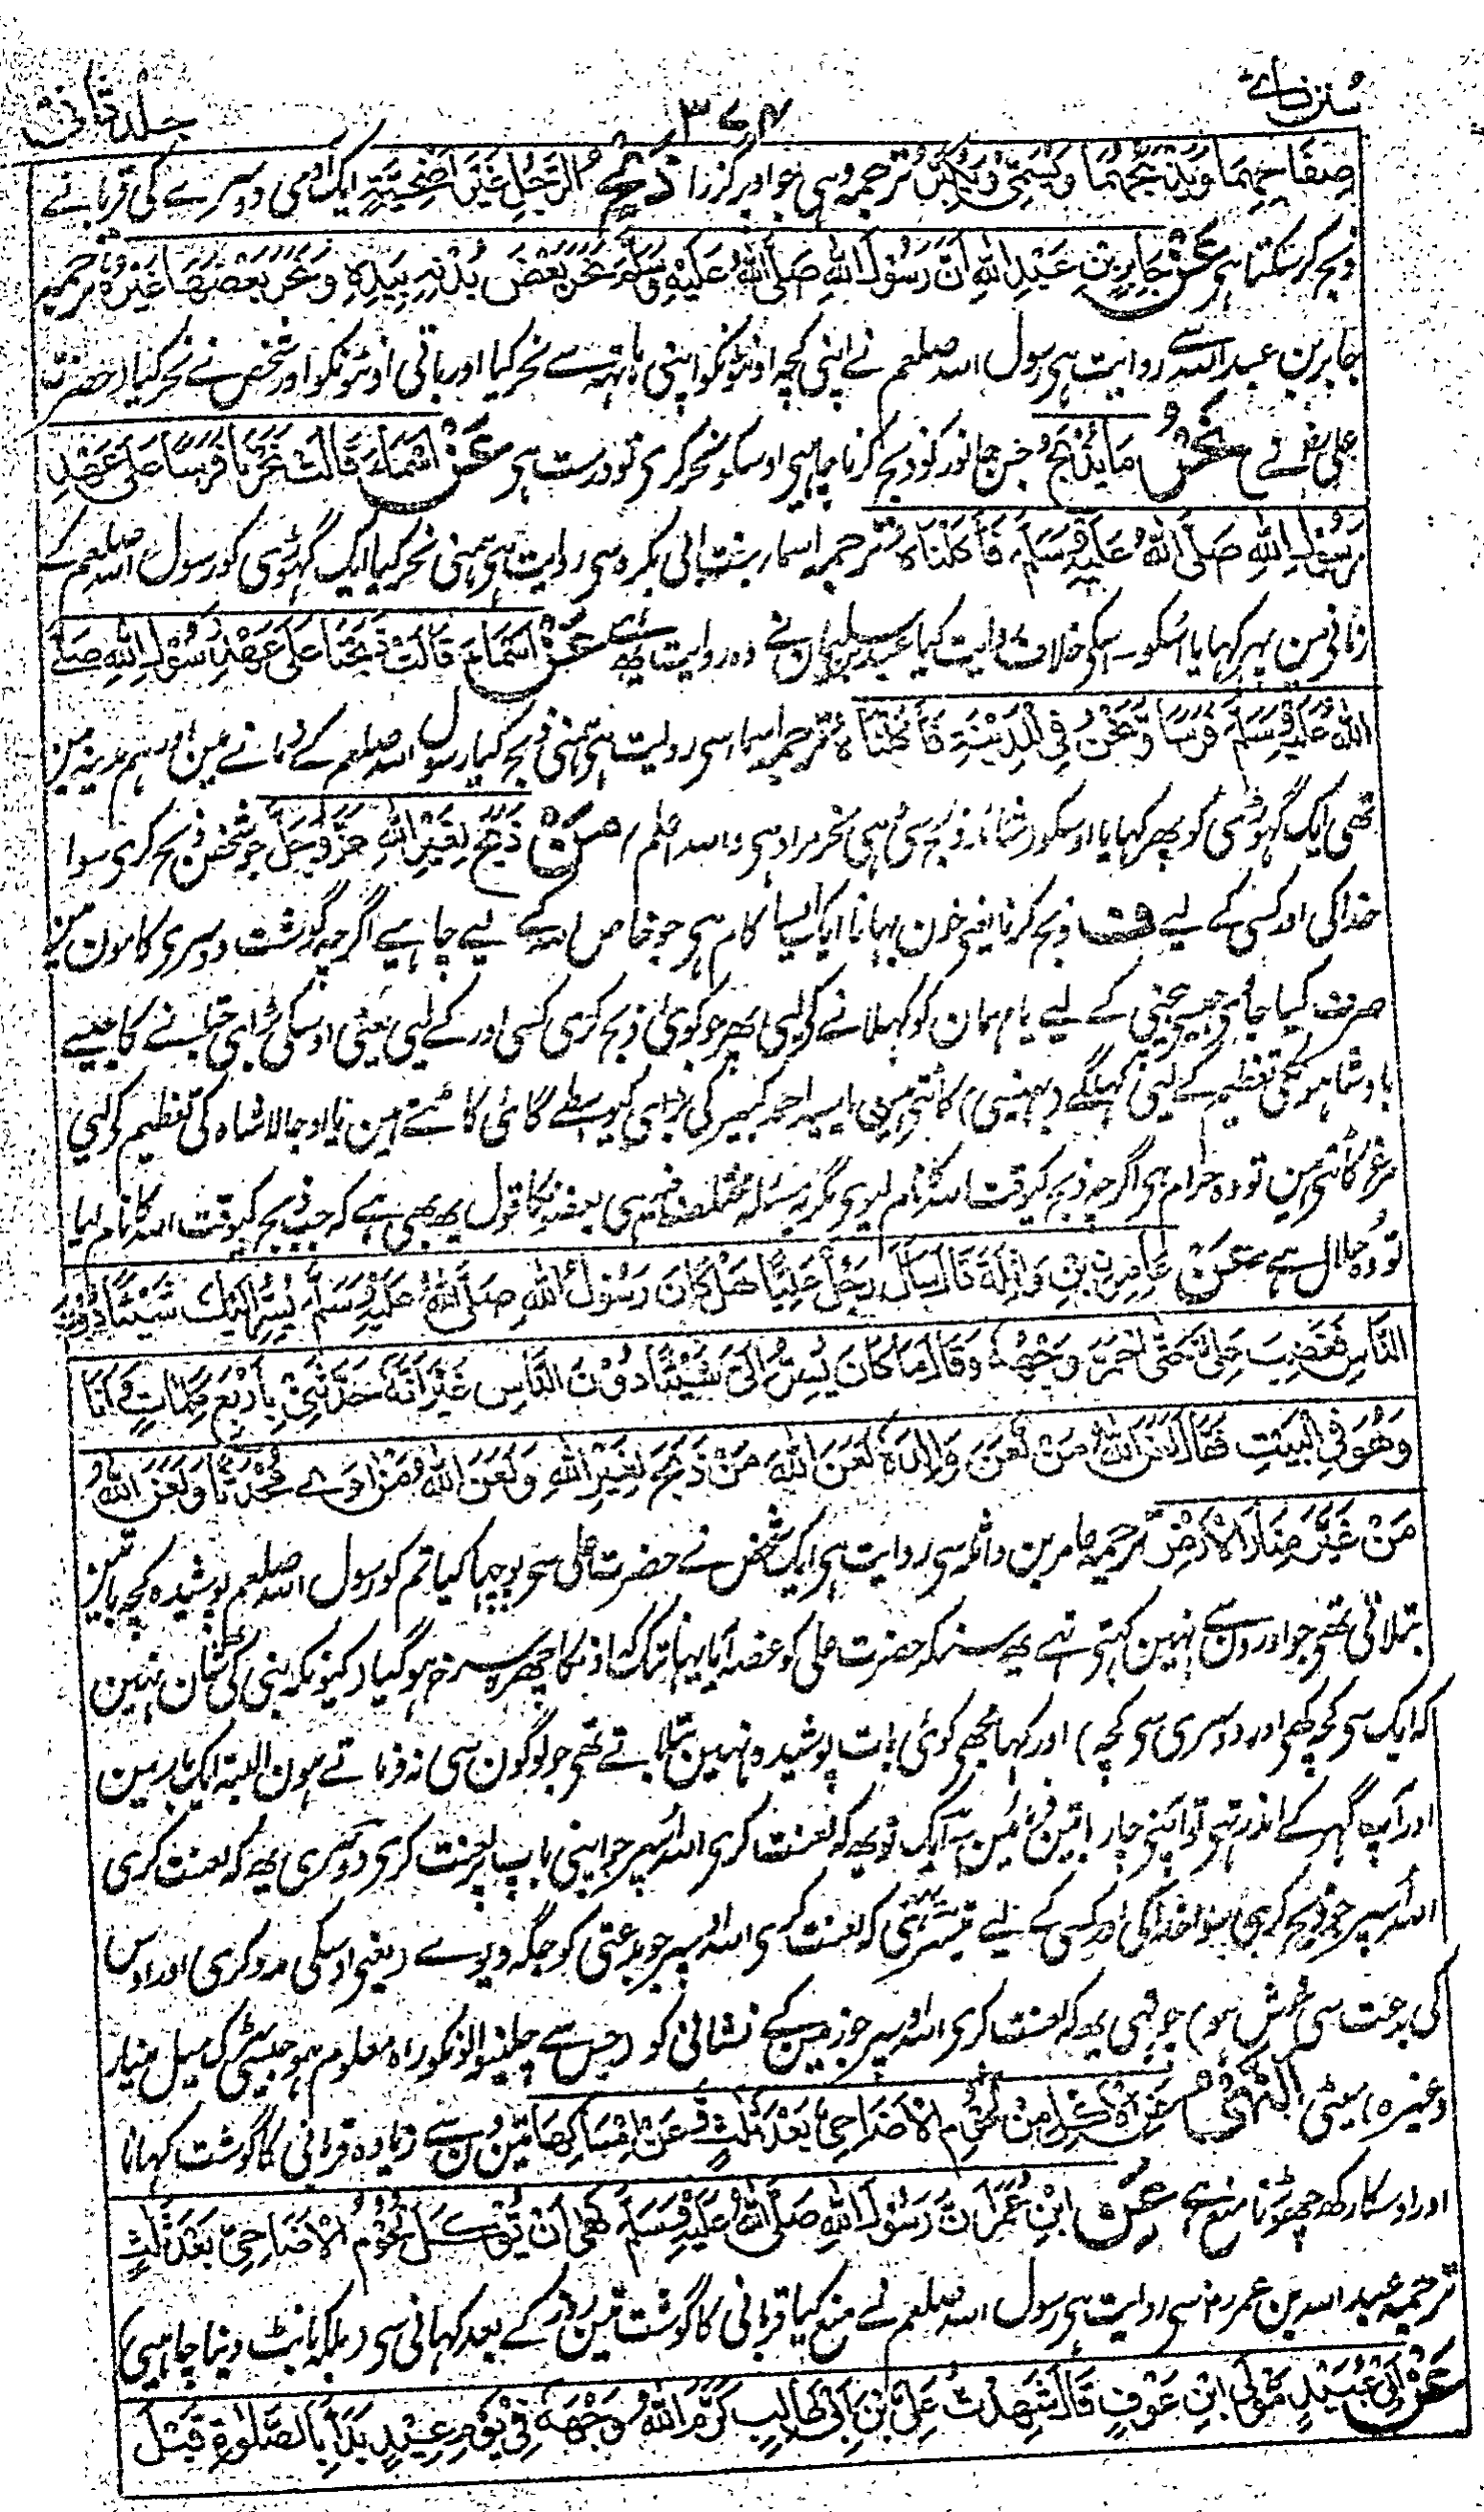 سنن نسائے
۳۷۴
جلد ثانی
صِفَاحِهِمَا وَيَذْبَحُهُمَا وَيُسَمِّيْ وَيُكَبِّرُ ترجمہ وہی جو اوپر گزرا ذَبْحُ الرَّجُلِ غَيْرَ اُضْحِيَّتِهٖ ایک آدمی دوسرے کی قربانے
ذبح کر سکتا ہی عَنْ جَابِرِ بْنِ عَبْدِ اللهِ اَنَّ رَسُوْلَ اللهِ صَلَّى اللهُ عَلَيْهِ وَسَلَّمَ نَحَرَ بَعْضَ بُدْنِهٖ بِيَدِهٖ وَنَحَرَ بَعْضَهَا غَيْرُهٗ ترجمہ
جابر بن عبد اللہ سے روایت ہی رسول اللہ صلعم نے اپنی کچہ اونٹونکو اپنی ہاتہہ سے نحر کیا اور باقی اونٹونکو اور شخص نے نحر کیا (حضرت
علی نے نَحْرُ مَا يُذْبَحُ جس جانور کو ذبح کرنا چاہیی اوسکو نحر کری تو درست ہی عَنْ اَسْمَاءَ قَالَتْ نَحَرْنَا فَرَسًا عَلٰى عَهْدِ
رَسُوْلِ اللهِ صَلَّى اللهُ عَلَيْهِ وَسَلَّمَ فَاَكَلْنَاهُ ترجمہ اسمار بنت ابی بکر سی روایت ہی ہمنی نحر کیا ایک گہوڑی کو رسول اللہ صلعم کے
زمانی مین پہر کہایا اسکو۔ اسکی خلاف روایت کیا عبدہ بن سلیمان نے وہ روایت یہہ ہے عَنْ اَسْمَاءَ قَالَتْ ذَبَحْنَا عَلٰى عَهْدِ رَسُوْلِ اللهِ صَلَّى
اللهُ عَلَيْهِ وَسَلَّمَ فَرَسًا وَنَحْنُ فِي الْمَدِيْنَةِ فَاَكَلْنَاهُ ترجمہ اسما سی روایت ہی ہمنی ذبح کیا رسول اللہ صلعم کے زمانے مین اور ہم مدینہ مین
تھی ایک گہوڑی کو پھر کہایا اوسکو ذبح سی ہی نحر مراد ہی واللہ اعلم مَنْ ذَبَحَ لِغَيْرِ اللهِ عَزَّ وَجَلَّ جو شخص ذبح کری سوا
خدا کی اور کسی کے لیے ف ذبح کرنا یعنی خون بہانا ایک ایسا کام ہی جو خاص اللہ کے لیے چاہیے اگرچہ گوشت دوسری کامون مین
صرف کیا جاوی جیسی بیچنی کے لیے یا مہمان کو کہلانے کو لیی پھر جو کوئی ذبح کری کسی اور کے لیی یعنی اوسکی بڑائی جتانے کا جیسے
بادشاہونکی تعظیم کے لیی بہیلگے (بہینسی) کاٹتی ہین یا سید احمد کبیر کی بڑائی کیواسطے گائی کاٹتے ہین یا اوجالا شاہ کی تعظیم کو لیی
مرغ کاٹتی ہین تو وہ حرام ہی اگرچہ ذبح کیوقت اللہ کا نام لیوی مگر یہ مسئلہ مختلف فیہ ہی بعضونکا قول یہہ بھی ہے کہ جب ذبح کیوقت اللہ کا نام لیا
تو وہ حلال ہے عَنْ عَامِرِ بْنِ وَاثِلَةَ قَالَ سَاَلَ رَجُلٌ عَلِيًّا هَلْ كَانَ رَسُوْلُ اللهِ صَلَّى اللهُ عَلَيْهِ وَسَلَّمَ يُسِرُّ اِلَيْكَ شَيْئًا دُوْنَ
النَّاسِ فَغَضِبَ عَلِيٌّ حَتّٰى احْمَرَّ وَجْهُهٗ وَقَالَ مَا كَانَ يُسِرُّ اِلَيَّ شَيْئًا دُوْنَ النَّاسِ غَيْرَ اَنَّهٗ حَدَّثَنِيْ بِاَرْبَعِ كَلِمَاتٍ وَّاَنَا
وَهُوَ فِي الْبَيْتِ فَقَالَ لَعَنَ اللهُ مَنْ لَعَنَ وَالِدَهٗ لَعَنَ اللهُ مَنْ ذَبَحَ لِغَيْرِ اللهِ وَلَعَنَ اللهُ مَنْ اٰوٰى مُحْدِثًا وَلَعَنَ اللهُ
مَنْ غَيَّرَ مَنَارَ الْاَرْضِ ترجمہ عامر بن واثلہ سی روایت ہی ایک شخص نے حضرت علی سی پوچہا کیا تم کو رسول اللہ صلعم پوشیدہ کچہ باتین
بتلاتی تھی جو اورون سے نہین کہتی تہے یہہ سنکر حضرت علی کو غصہ آیا یہانتک کہ اونکا چہرہ سرخ ہوگیا (کیونکہ نبی کی شان نہین
کہ ایک سی کچہ کہی اور دوسری سی کچہ) اور کہا مجہی کوئی بات پوشیدہ نہین بتلاتے تھی جو لوگون سی نہ فرماتے ہون البتہ ایکبار مین
اور آپ گہر کے اندر تہی تو آپنی چار باتین فرمائین ایک تو یہہ کہ لعنت کری اللہ اُسپر جو اپنی باپ پر لعنت کری دوسری یہہ کہ لعنت کری
اللہ اُسپر جو ذبح کری سوا خدا کی اور کسی کے لیے تیسری کہ لعنت کری اللہ اُسپر جو بدعتی کو جگہ دیوے (یعنی اوسکی مدد کری اور اوس
کی بدعت سی خوش ہو) چوتہی یہہ کہ لعنت کری اللہ اُسپر جو زمین کے نشانی کو (جس سے چلنیوالونکو راہ معلوم ہو جیسی سڑک میل مینار
وغیرہ) میٹی النَّهْيُ عَنِ الْاَكْلِ مِنْ لُحُوْمِ الْاَضَاحِيِّ بَعْدَ ثَلٰثٍ وَّعَنْ اِمْسَاكِهَا تین دن سے زیادہ قربانی کا گوشت کہانا
اور اوسکا رکھ چھوڑنا منع ہے عَنِ ابْنِ عُمَرَ اَنَّ رَسُوْلَ اللهِ صَلَّى اللهُ عَلَيْهِ وَسَلَّمَ نَهٰى اَنْ تُؤْكَلَ لُحُوْمُ الْاَضَاحِيِّ بَعْدَ ثَلٰثٍ
ترجمہ عبد اللہ بن عمر سی روایت ہی رسول اللہ صلعم نے منع کیا قربانی کا گوشت تین روز کے بعد کہانی سی (بلکہ بانٹ دینا چاہیی)
عَنْ اَبِيْ عُبَيْدٍ مَوْلَى ابْنِ عَوْفٍ قَالَ شَهِدْتُ عَلِيَّ بْنَ اَبِيْ طَالِبٍ كَرَّمَ اللهُ وَجْهَهٗ فِيْ يَوْمِ عِيْدٍ بَدَاَ بِالصَّلٰوةِ قَبْلَ